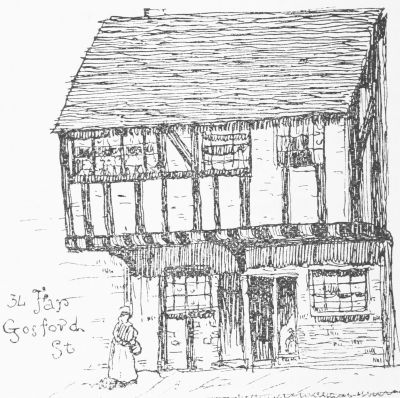 34 Far
Gosford
St